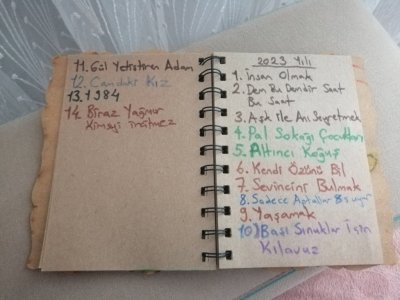 11. Gül Yetiştiren Adam
12. Camdaki Kız
13. 1984
14. Biraz Yağmur
Kimseyi incitmez
2023 Yılı
1. İnsan Olmak
2. Dem Bu Demdir Saat
Bu Saat
3. Aşk ile Anı Seyretmek
4. Pal Sokağı Çocukları
5. Altıncı Koğuş
6. Kendi Özünü Bil
7. Sevincini Bulmak
8. Sadece Aptallar 8 s uyur
9. Yaşamak
10) Başı Sınuklar İçin
Kılavuz